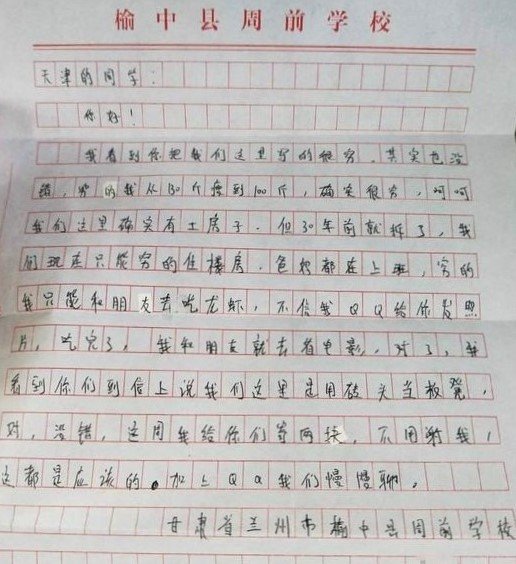 榆中县周前学校
天津的同学：
你好！
我看到你把我们这里写的很穷，其实也没
错，穷的我从130斤瘦到100斤，确实很穷，呵呵
我们这里确实有土房子，但30年前就拆了，我
们现在只能穷的住楼房，爸妈都在上班，穷的
我只能和朋友去吃龙虾，不信我QQ给你发照
片，吃完了，我和朋友就去看电影，对了，我
看到你们到信上说我们这里是用砖头当板凳，
对，没错，这周我给你们寄两块，不用谢我，
这都是应该的。加上QQ我们慢慢聊。
甘肃省兰州市榆中县周前学校